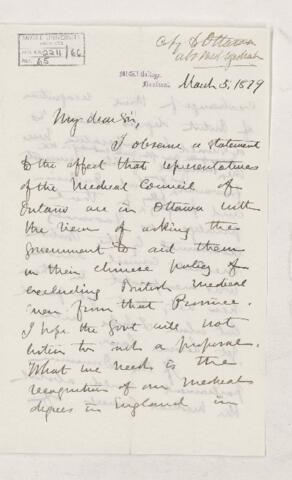 McGILL UNIVERSITY
ARCHIVES
ACC. NO. 2211/66
REF. 65
Copy to Ottawa
abt Med legislation
McGill College,
Montreal,
March 5, 1879
My dear Sir,
I observe a statement
to the effect that representatives
of the Medical Council of
Ontario are in Ottawa with
the view of asking the
Government to aid them
in their chinese policy of
excluding British medical
men from that Province.
I hope the Govt will not
listen to such a proposal.
What we need is the
recognition of our medical
degrees in England in